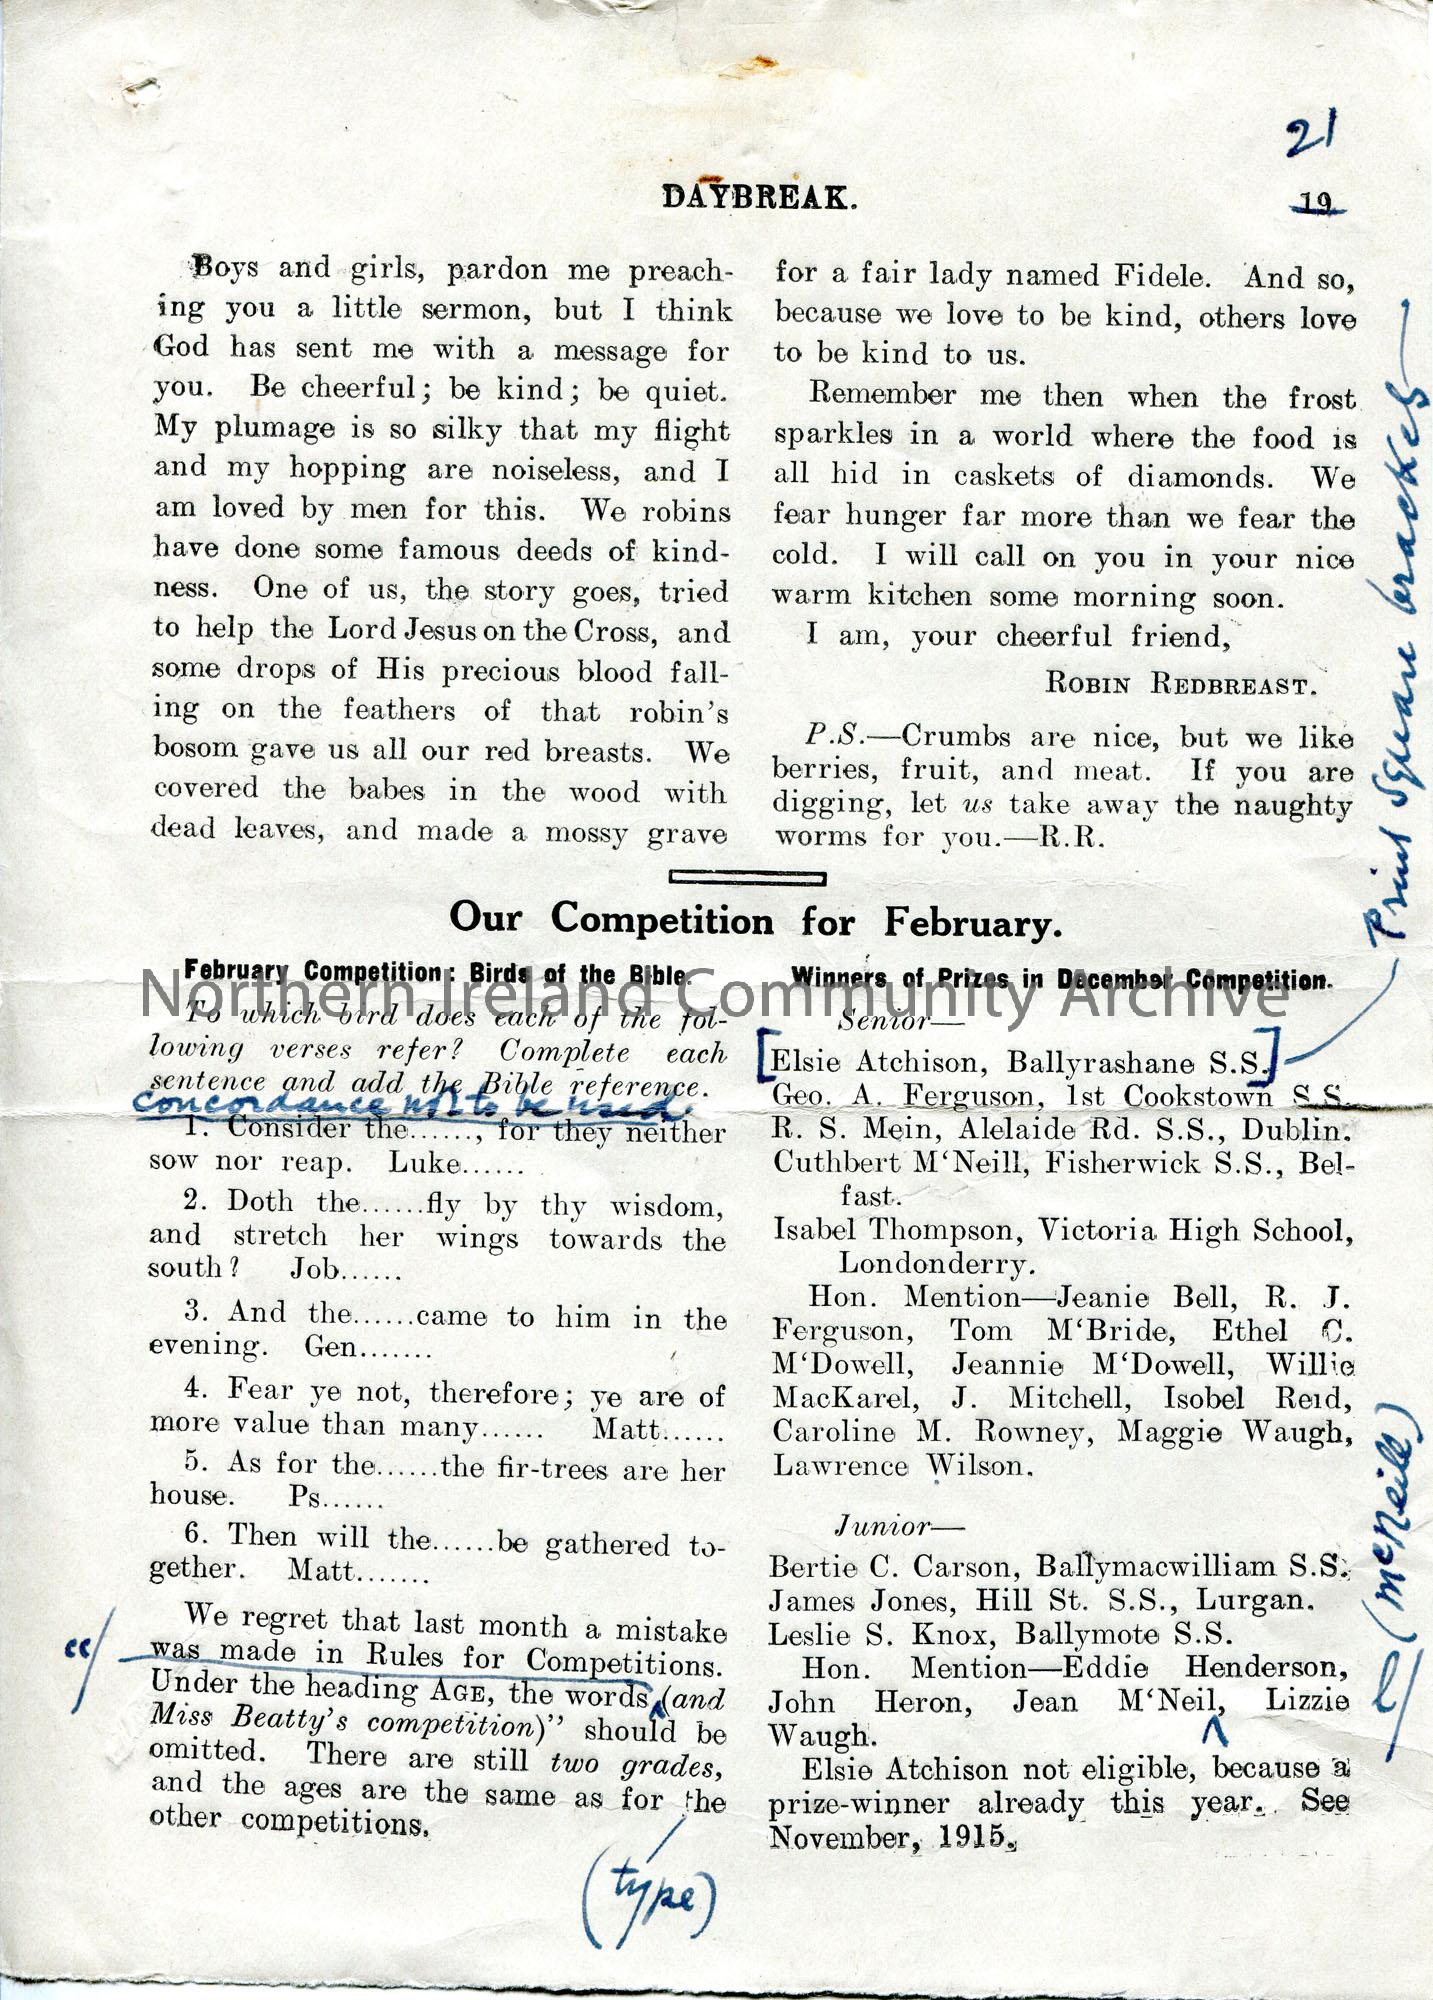 21
DAYBREAK.
19
Boys and girls, pardon me preach-
ing you a little sermon, but I think
God has sent me with a message for
you. Be cheerful; be kind; be quiet.
My plumage is so silky that my flight
and my hopping are noiseless, and I
am loved by men for this. We robins
have done some famous deeds of kind-
ness. One of us, the story goes, tried
to help the Lord Jesus on the Cross, and
some drops of His precious blood fall-
ing on the feathers of that robin's
bosom gave us all our red breasts. We
covered the babes in the wood with
dead leaves, and made a mossy grave
for a fair lady named Fidele. And so,
because we love to be kind, others love
to be kind to us.
Remember me then when the frost
sparkles in a world where the food is
all hid in caskets of diamonds. We
fear hunger far more than we fear the
cold. I will call on you in your nice
warm kitchen some morning soon.
I am, your cheerful friend,
ROBIN REDBREAST.
P.S.—Crumbs are nice, but we like
berries, fruit, and meat. If you are
digging, let us take away the naughty
worms for you.—R.R.
Print square brackets
Our Competition for February.
February Competition: Birds of the Bible.
To which bird does each of the fol-
lowing verses refer? Complete each
sentence and add the Bible reference.
concordance not to be used.
1. Consider the......, for they neither
sow nor reap. Luke......
2. Doth the......fly by thy wisdom,
and stretch her wings towards the
south? Job......
3. And the......came to him in the
evening. Gen.......
4. Fear ye not, therefore; ye are of
more value than many...... Matt......
5. As for the......the fir-trees are her
house. Ps......
6. Then will the......be gathered to-
gether. Matt.......
We regret that last month a mistake
was made in Rules for Competitions.
Under the heading AGE, the words (and
Miss Beatty's competition)" should be
omitted. There are still two grades,
and the ages are the same as for the
other competitions.
“/
(type)
Winners of Prizes in December Competition.
Senior—
[Elsie Atchison, Ballyrashane S.S.]
Geo. A. Ferguson, 1st Cookstown S.S.
R. S. Mein, Alelaide Rd. S.S., Dublin.
Cuthbert M‘Neill, Fisherwick S.S., Bel-
fast.
Isabel Thompson, Victoria High School,
Londonderry.
Hon. Mention—Jeanie Bell, R. J.
Ferguson, Tom M‘Bride, Ethel C.
M‘Dowell, Jeannie M‘Dowell, Willie
MacKarel, J. Mitchell, Isobel Reid,
Caroline M. Rowney, Maggie Waugh,
Lawrence Wilson.
Junior—
Bertie C. Carson, Ballymacwilliam S.S.
James Jones, Hill St. S.S., Lurgan.
Leslie S. Knox, Ballymote S.S.
Hon. Mention—Eddie Henderson,
John Heron, Jean M‘Neil, Lizzie
Waugh.
Elsie Atchison not eligible, because a
prize-winner already this year. See
November, 1915.
l/ (McNeill)
Northern Ireland Community Archive